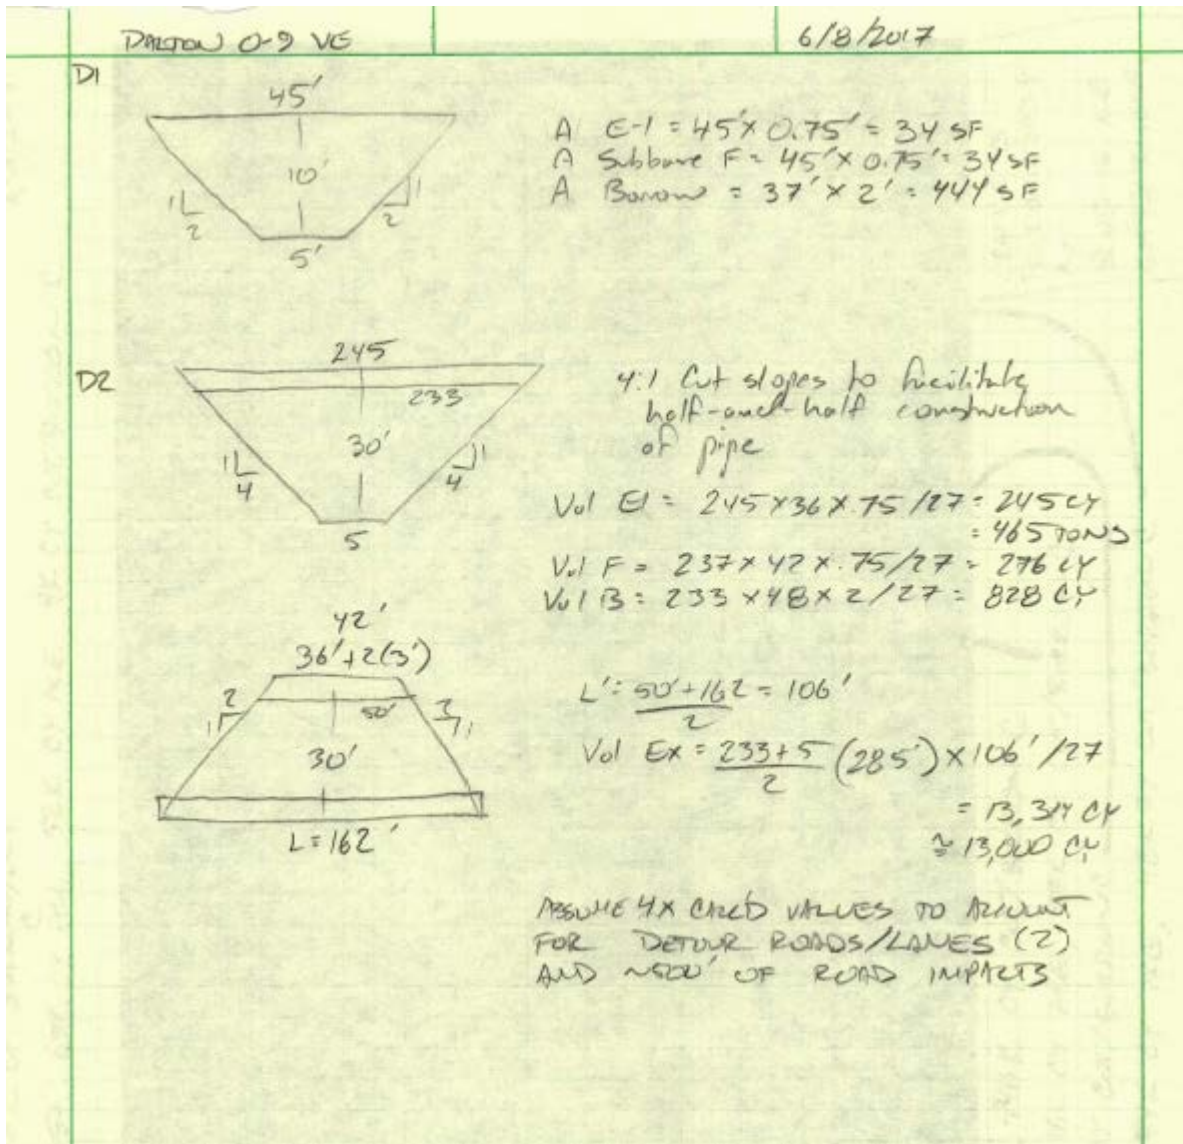 DALTON 0-9 VE 6/8/2017
D1
45'
10'
1
2
1
2
5'
A E-1 = 45' x 0.75' = 34 SF
A Subbase F = 45' x 0.75' = 34 SF
A Borrow = 37' x 2' = 444 SF
D2
245
233
30'
1
4
1
4
5
4:1 Cut slopes to facilitate
half-and-half construction
of pipe
Vol E1 = 245 x 36 x .75 / 27 = 245 CY
= 465 TONS
Vol F = 237 x 42 x .75 / 27 = 276 CY
Vol B = 233 x 48 x 2 / 27 = 828 CY
42'
36' + 2(3')
50'
2
1
2
1
30'
L = 162'
L' = 50' + 162 = 106'
2
Vol Ex = 233 + 5 (28.5') x 106' / 27
2
= 13,314 CY
≈ 13,000 CY
ASSUME 4X CALC'D VALUES TO ACCOUNT
FOR DETOUR ROADS/LANES (2)
AND ~500' OF ROAD IMPACTS